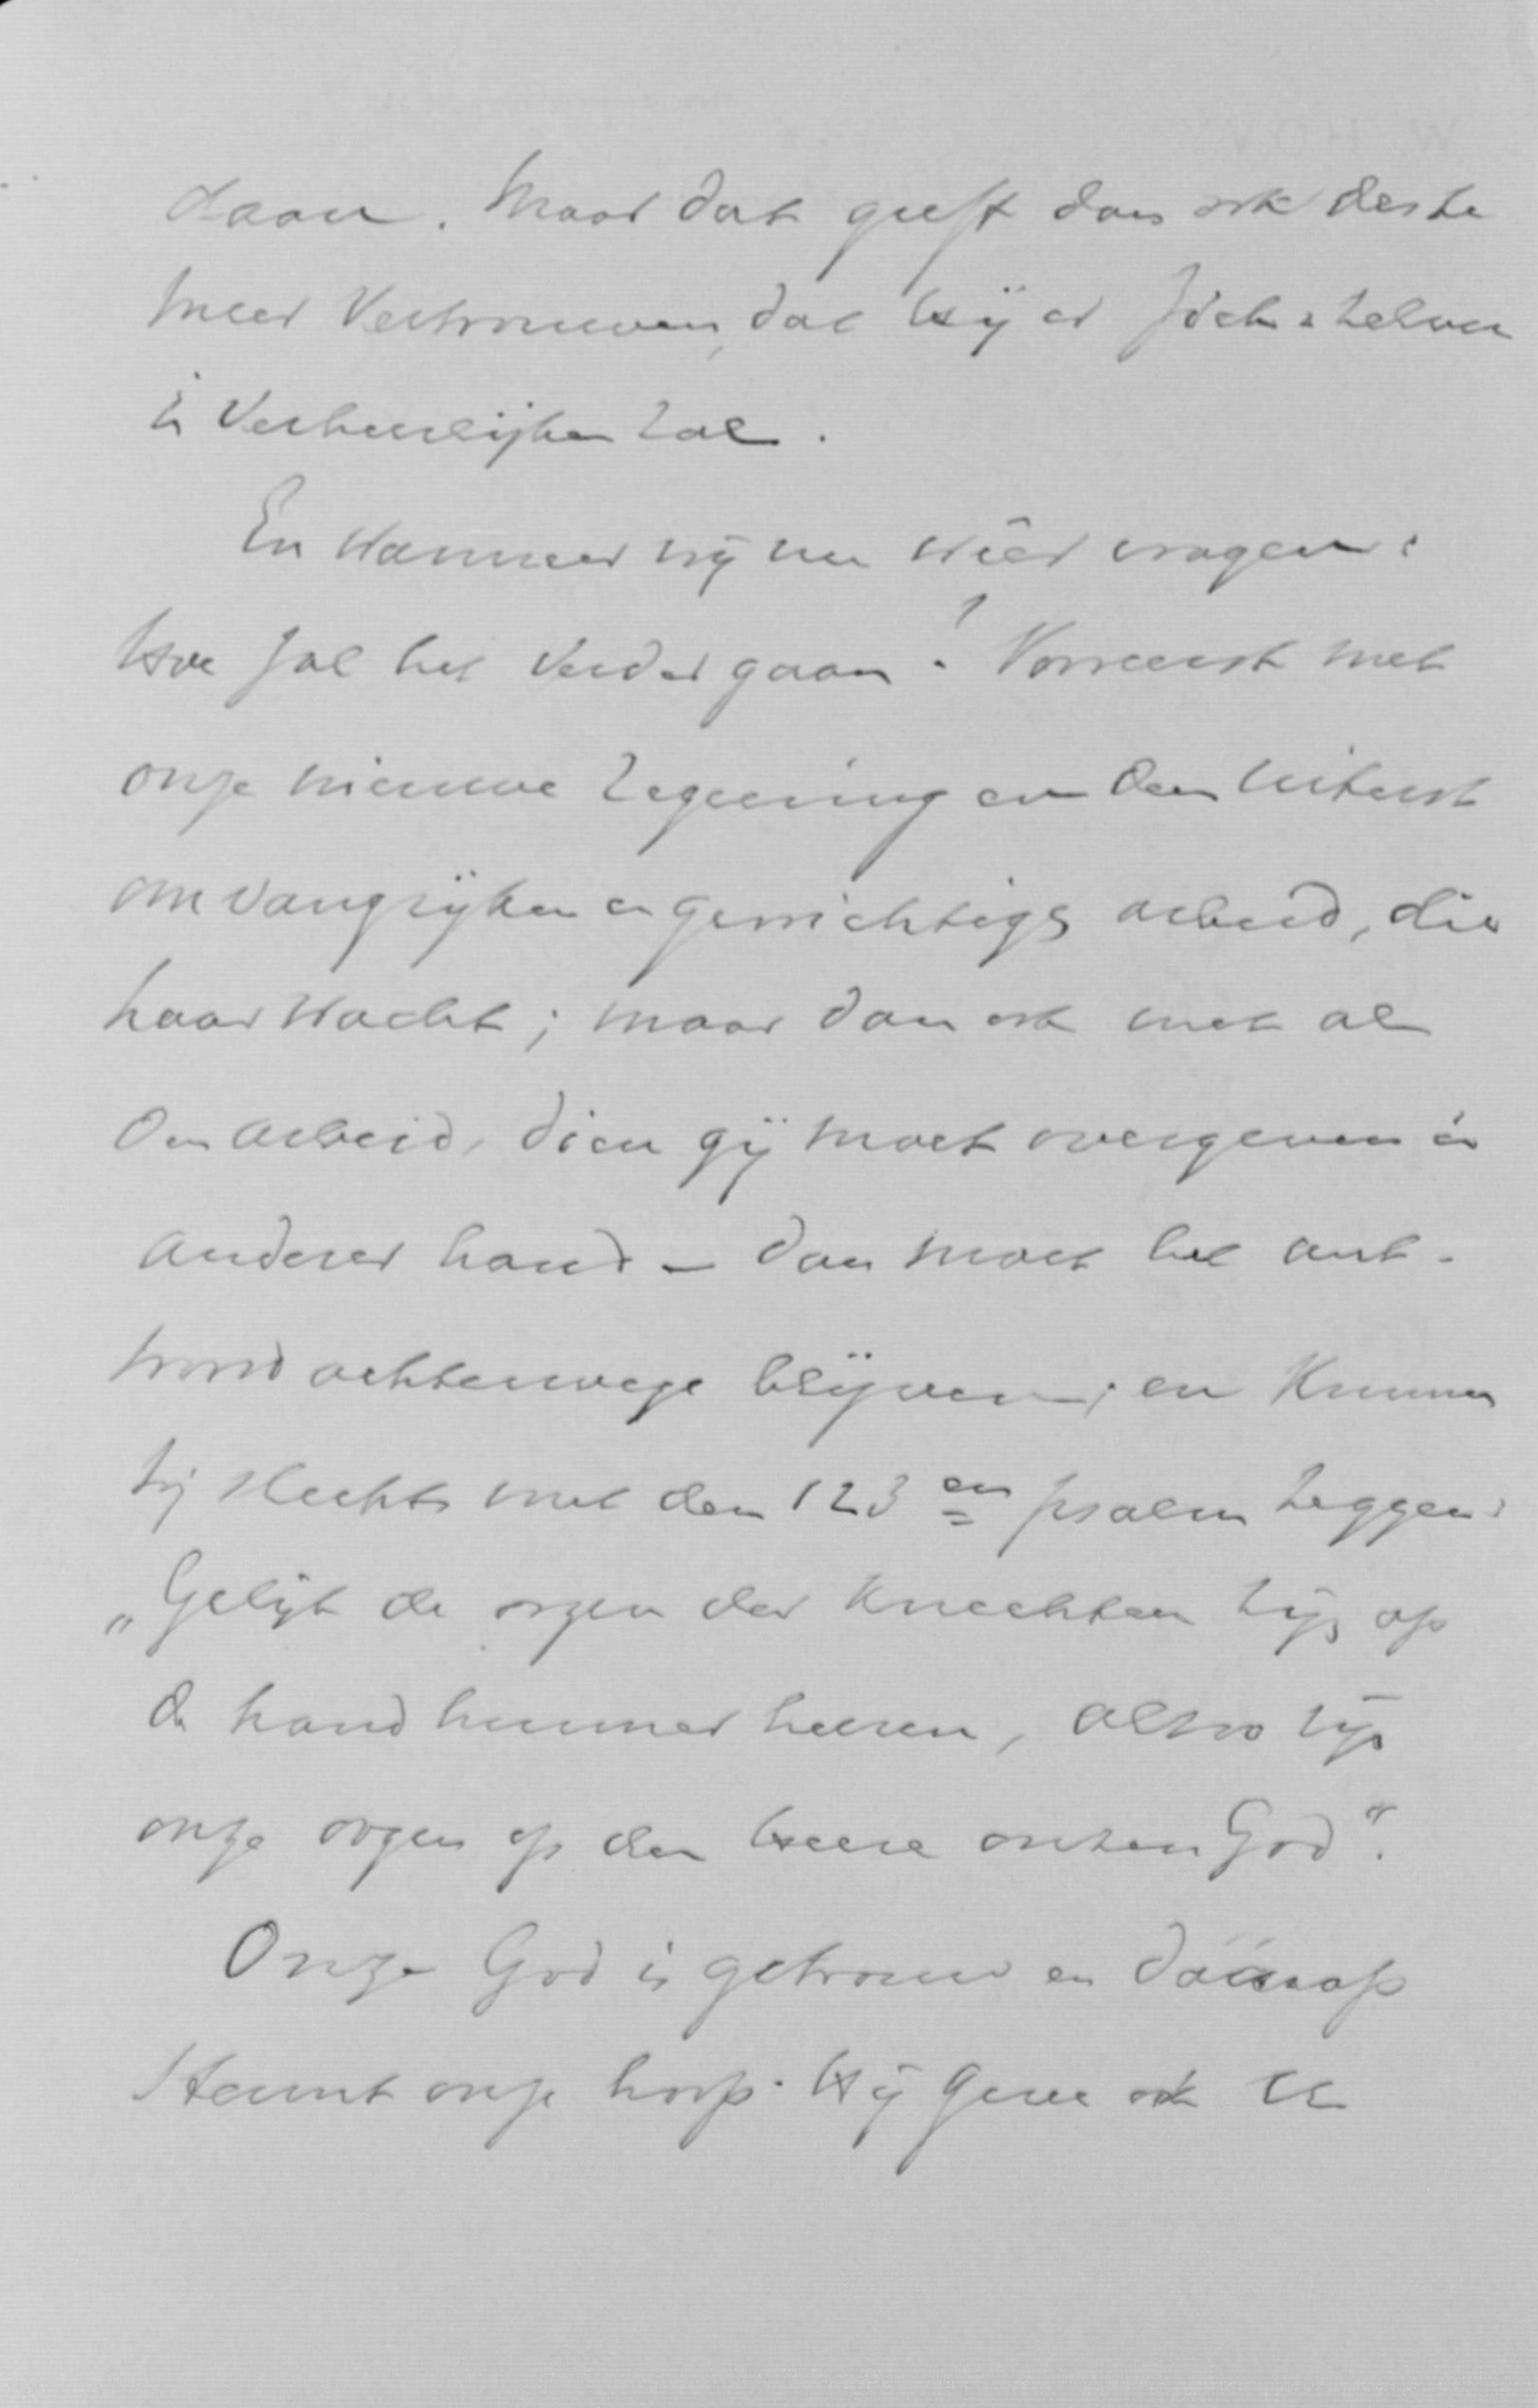 daan. Maar dat geeft dan ook deste
meer vertrouwen, dat Hij er zich-zelven
in verheerlijken zal.
En wanneer wij nu wêer vragen:
Hoe zal het verder gaan? Vooreerst met
onze nieuwe regeering en den uiterst
omvangrijken en gewichtigs arbeid, die
haar wacht; maar dan ook met al
den arbeid, dien gij moet overgeven in
anderer hand – dan moet het ant-
woord achterwege blijven; en kunnen
wij slechts met den 123en psalm zeggen:
„Gelijk de oogen der knechten zijn op
de hand hunner heeren, alzoo zijn
onze oogen op den Heere onzen God".
Onze God is getrouw en dáárop
steunt onze hoop. Hij geve ook U